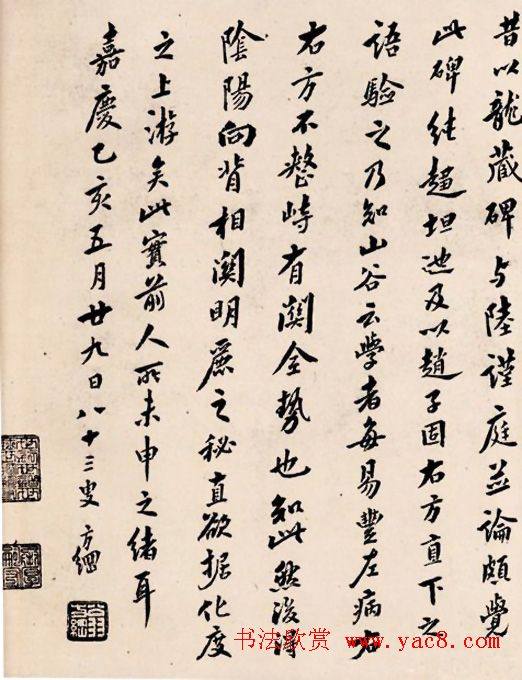 昔以龍藏碑与陸谨庭並論頗覺
此碑純趨坦迆及以趙子固右方直下之
語驗之乃知山谷云學者每易豐左病右
右方不整峙有關全勢也知此然後得
陰陽向背相關明麗之秘直欲据化度
之上游矣此實前人所未申之緒耳
嘉慶乙亥五月廿九日八十三叟方綱
书法欣赏 www.yac8.com